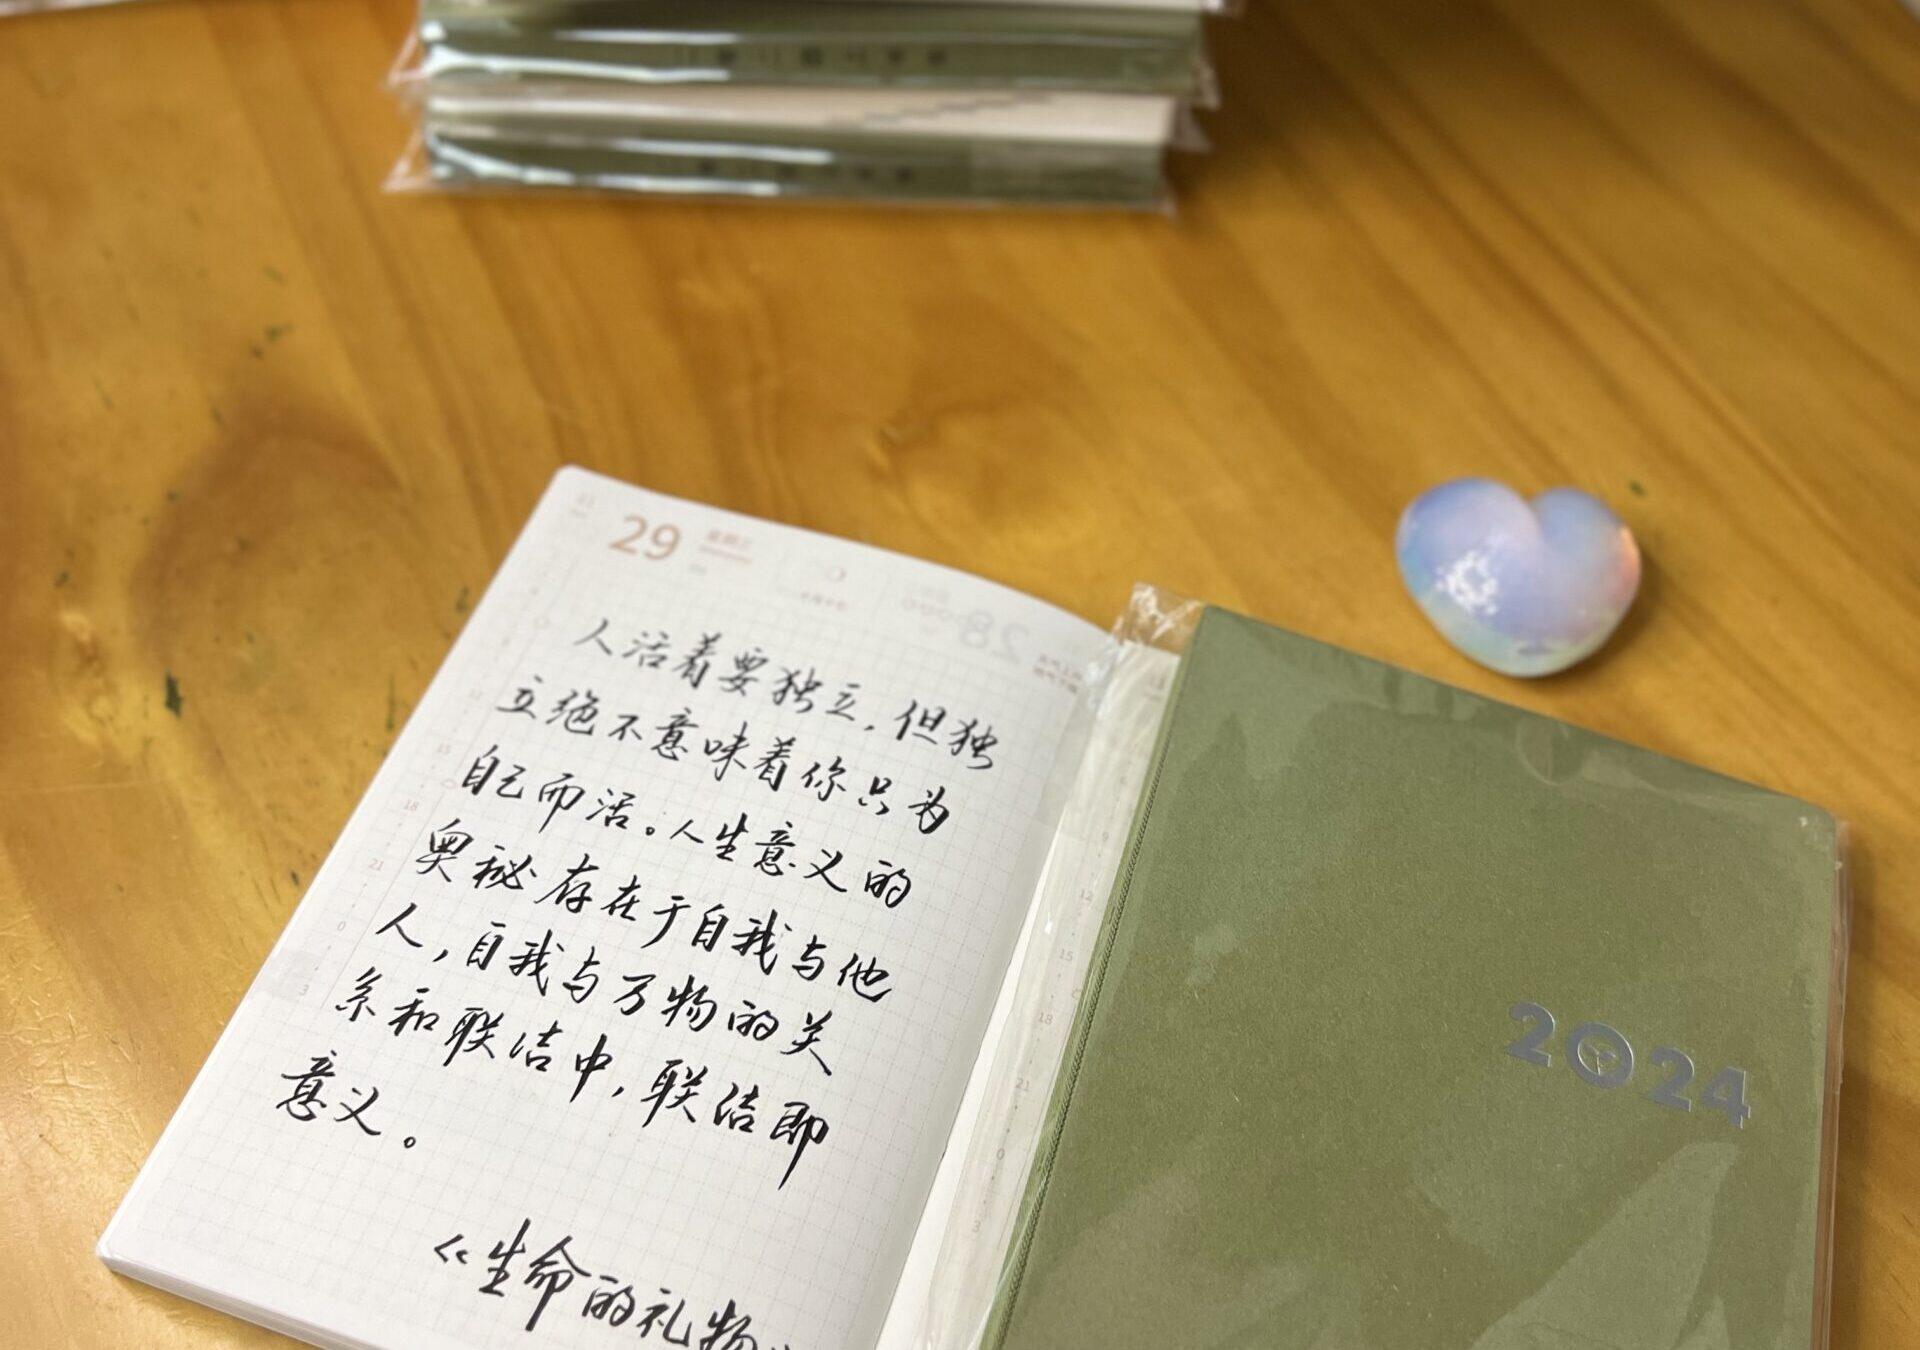 29
人活着要独立，但独
立绝不意味着你只为
自己而活。人生意义的
奥秘存在于自我与他
人，自我与万物的关
系和联结中，联结即
意义。
《生命的礼物
15
18
21
0
3
9
12
15
18
21
0
3
2024